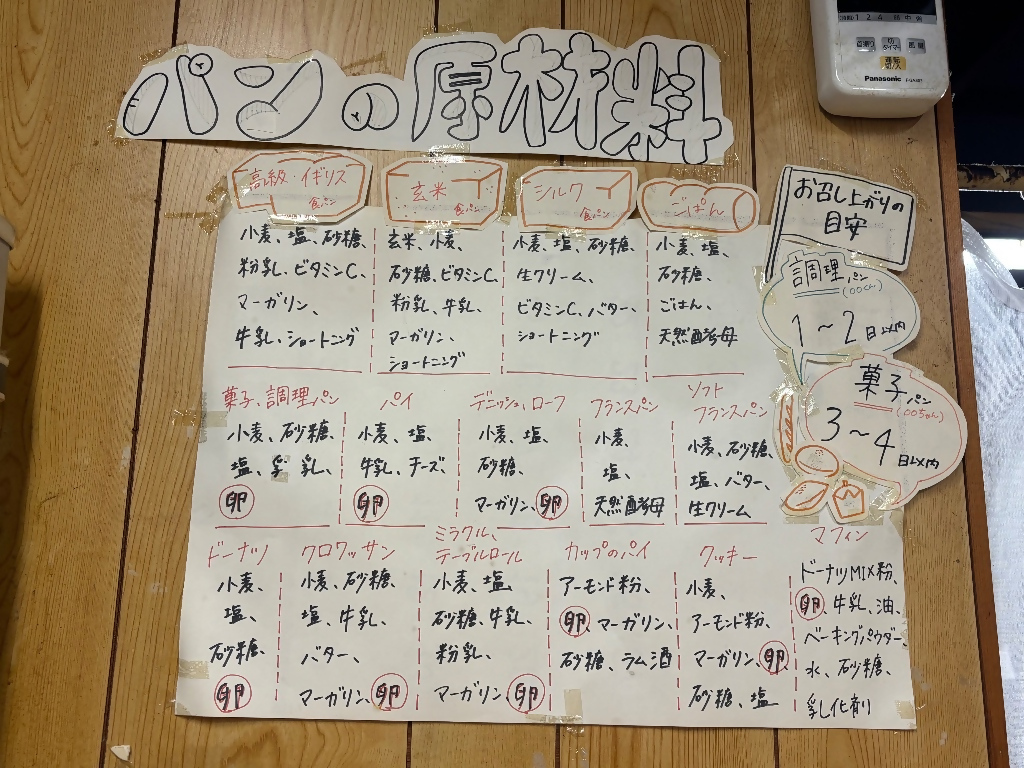 パンの原材料
Panasonic
高級・イギリス
食パン
小麦、塩、砂糖、
粉乳、ビタミンC、
マーガリン、
牛乳、ショートニング
玄米
食パン
玄米、小麦、
砂糖、ビタミンC、
粉乳、牛乳、
マーガリン、
ショートニング
シルク
食パン
小麦、塩、砂糖、
生クリーム、
ビタミンC、バター、
ショートニング
ごぱん
小麦、塩、
砂糖、
ごはん、
天然酵母
お召し上がりの
目安
調理パン
1~2日以内
菓子パン
3~4日以内
菓子、調理パン
小麦、砂糖、
塩、乳、
卵
パイ
小麦、塩、
牛乳、チーズ、
卵
デニッシュ、ローフ
小麦、塩、
砂糖、
マーガリン、卵
フランスパン
小麦、
塩、
天然酵母
ソフト
フランスパン
小麦、砂糖、
塩、バター、
生クリーム
ドーナツ
小麦、
塩、
砂糖、
卵
クロワッサン
小麦、砂糖、
塩、牛乳、
バター、
マーガリン、卵
ミラクル、
テーブルロール
小麦、塩
砂糖、牛乳、
粉乳、
マーガリン、卵
カップのパイ
アーモンド粉、
卵、マーガリン、
砂糖、ラム酒
クッキー
小麦、
アーモンド粉、
マーガリン、卵、
砂糖、塩
マフィン
ドーナツMIX粉、
卵、牛乳、油、
ベーキングパウダー、
水、砂糖、
乳化剤